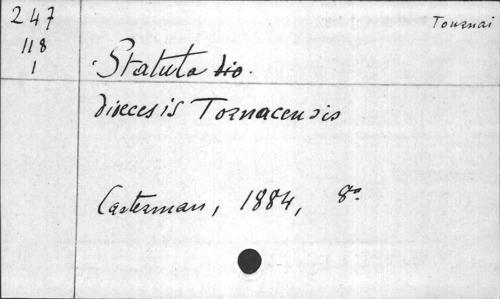 247
Tournai
118
1
Statuta dio.
dioecesis Tornacensis
Casterman, 1884, 8º